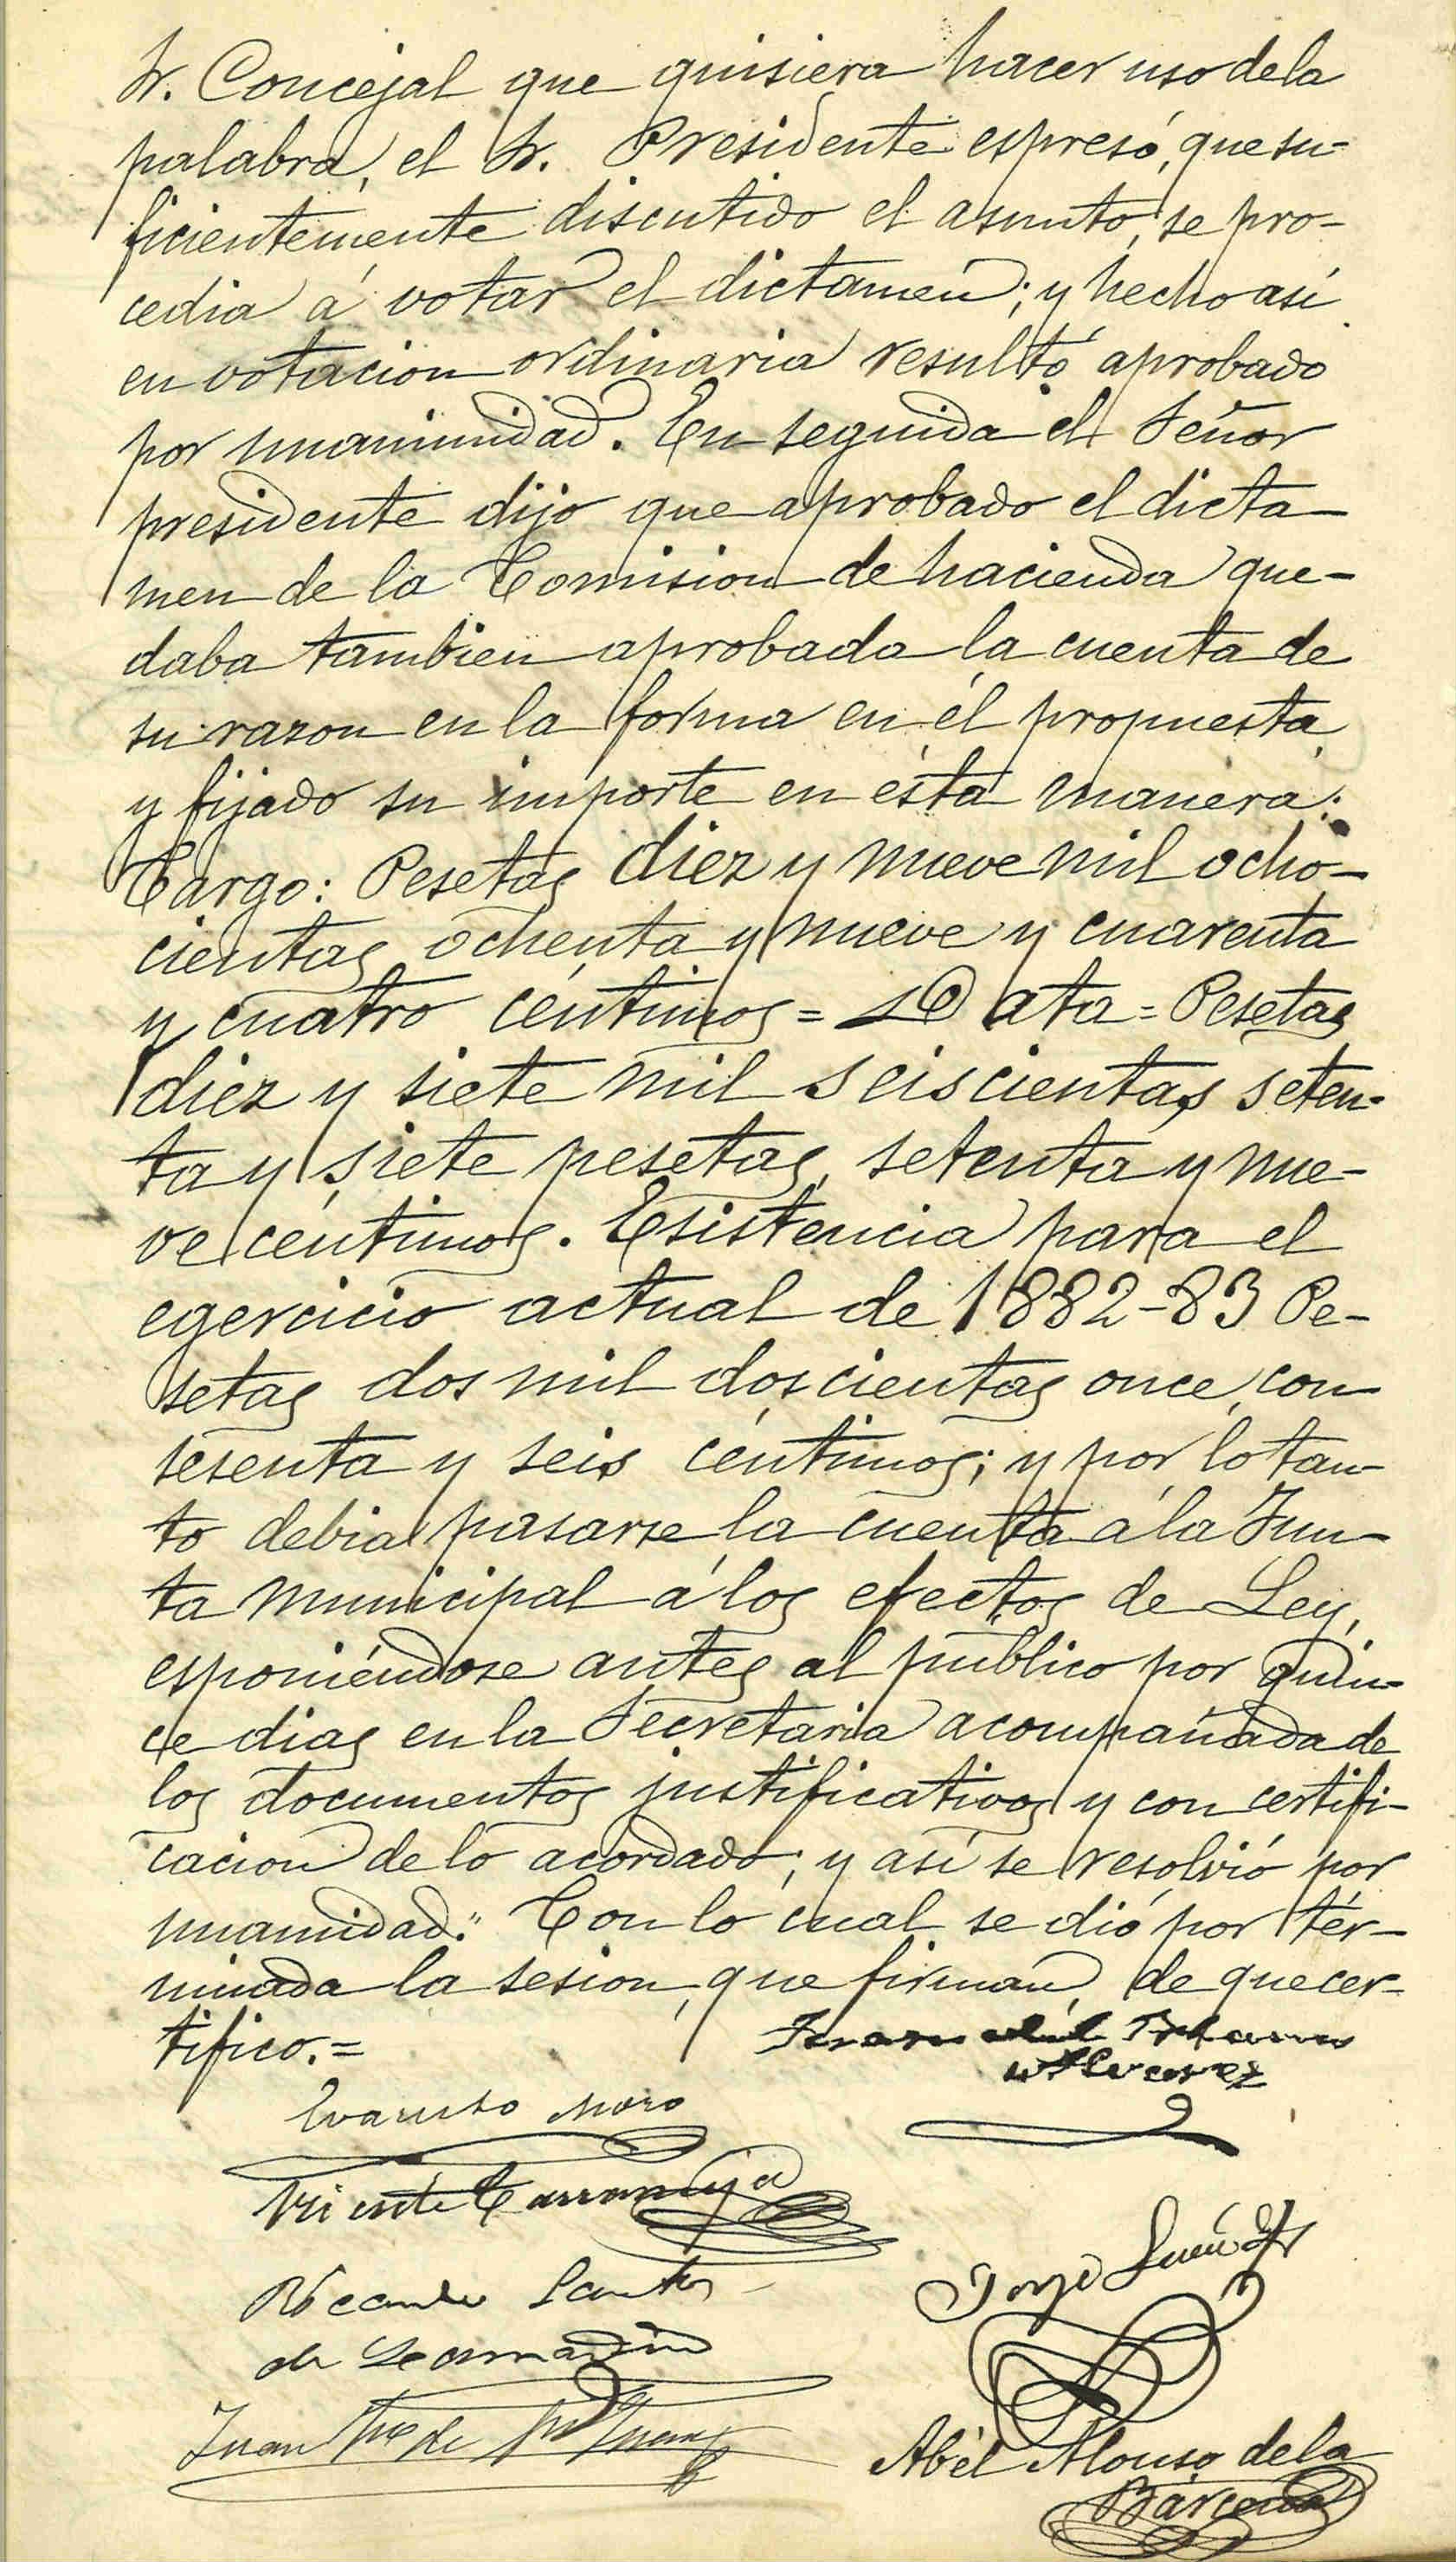 Sr. Concejal que quisiera hacer uso de la
palabra, el Sr. Presidente espresó, que su-
ficientemente discutido el asunto, se pro-
cedia á votar el dictamen; y hecho así
en votacion ordinaria resultó aprobado
por unanimidad. En seguida el Señor
presidente dijo que aprobado el dicta
men de la Comision de hacienda que-
daba tambien aprobada la cuenta de
su razon en la forma en él propuesta,
y fijado su importe en ésta manera:
Cargo: Pesetas diez y nueve mil ocho-
cientas ochenta y nueve y cuarenta
y cuatro céntimos = Data = Pesetas
diez y siete mil seiscientas seten-
ta y siete pesetas, setenta y nue-
ve céntimos. Esistencia para el
egercicio actual de 1882-83 Pe-
setas dos mil doscientas once, con
sesenta y seis céntimos; y por lo tan-
to debia pasarse la cuenta á la Jun-
ta municipal á los efectos de Ley,
esponiéndose antes al público por quin-
ce dias en la Secretaria acompañada de
los documentos justificativos y con certifi-
cacion de lo acordado; y así se resolvió por
unamidad." Con lo cual se dió por tér-
minada la sesion, que firman, de que cer-
tifico.=
Evaristo Moro
Alvarez
Vicente
Santos
de
Jorge
Juan
Abél Alonso de la
Bárcena